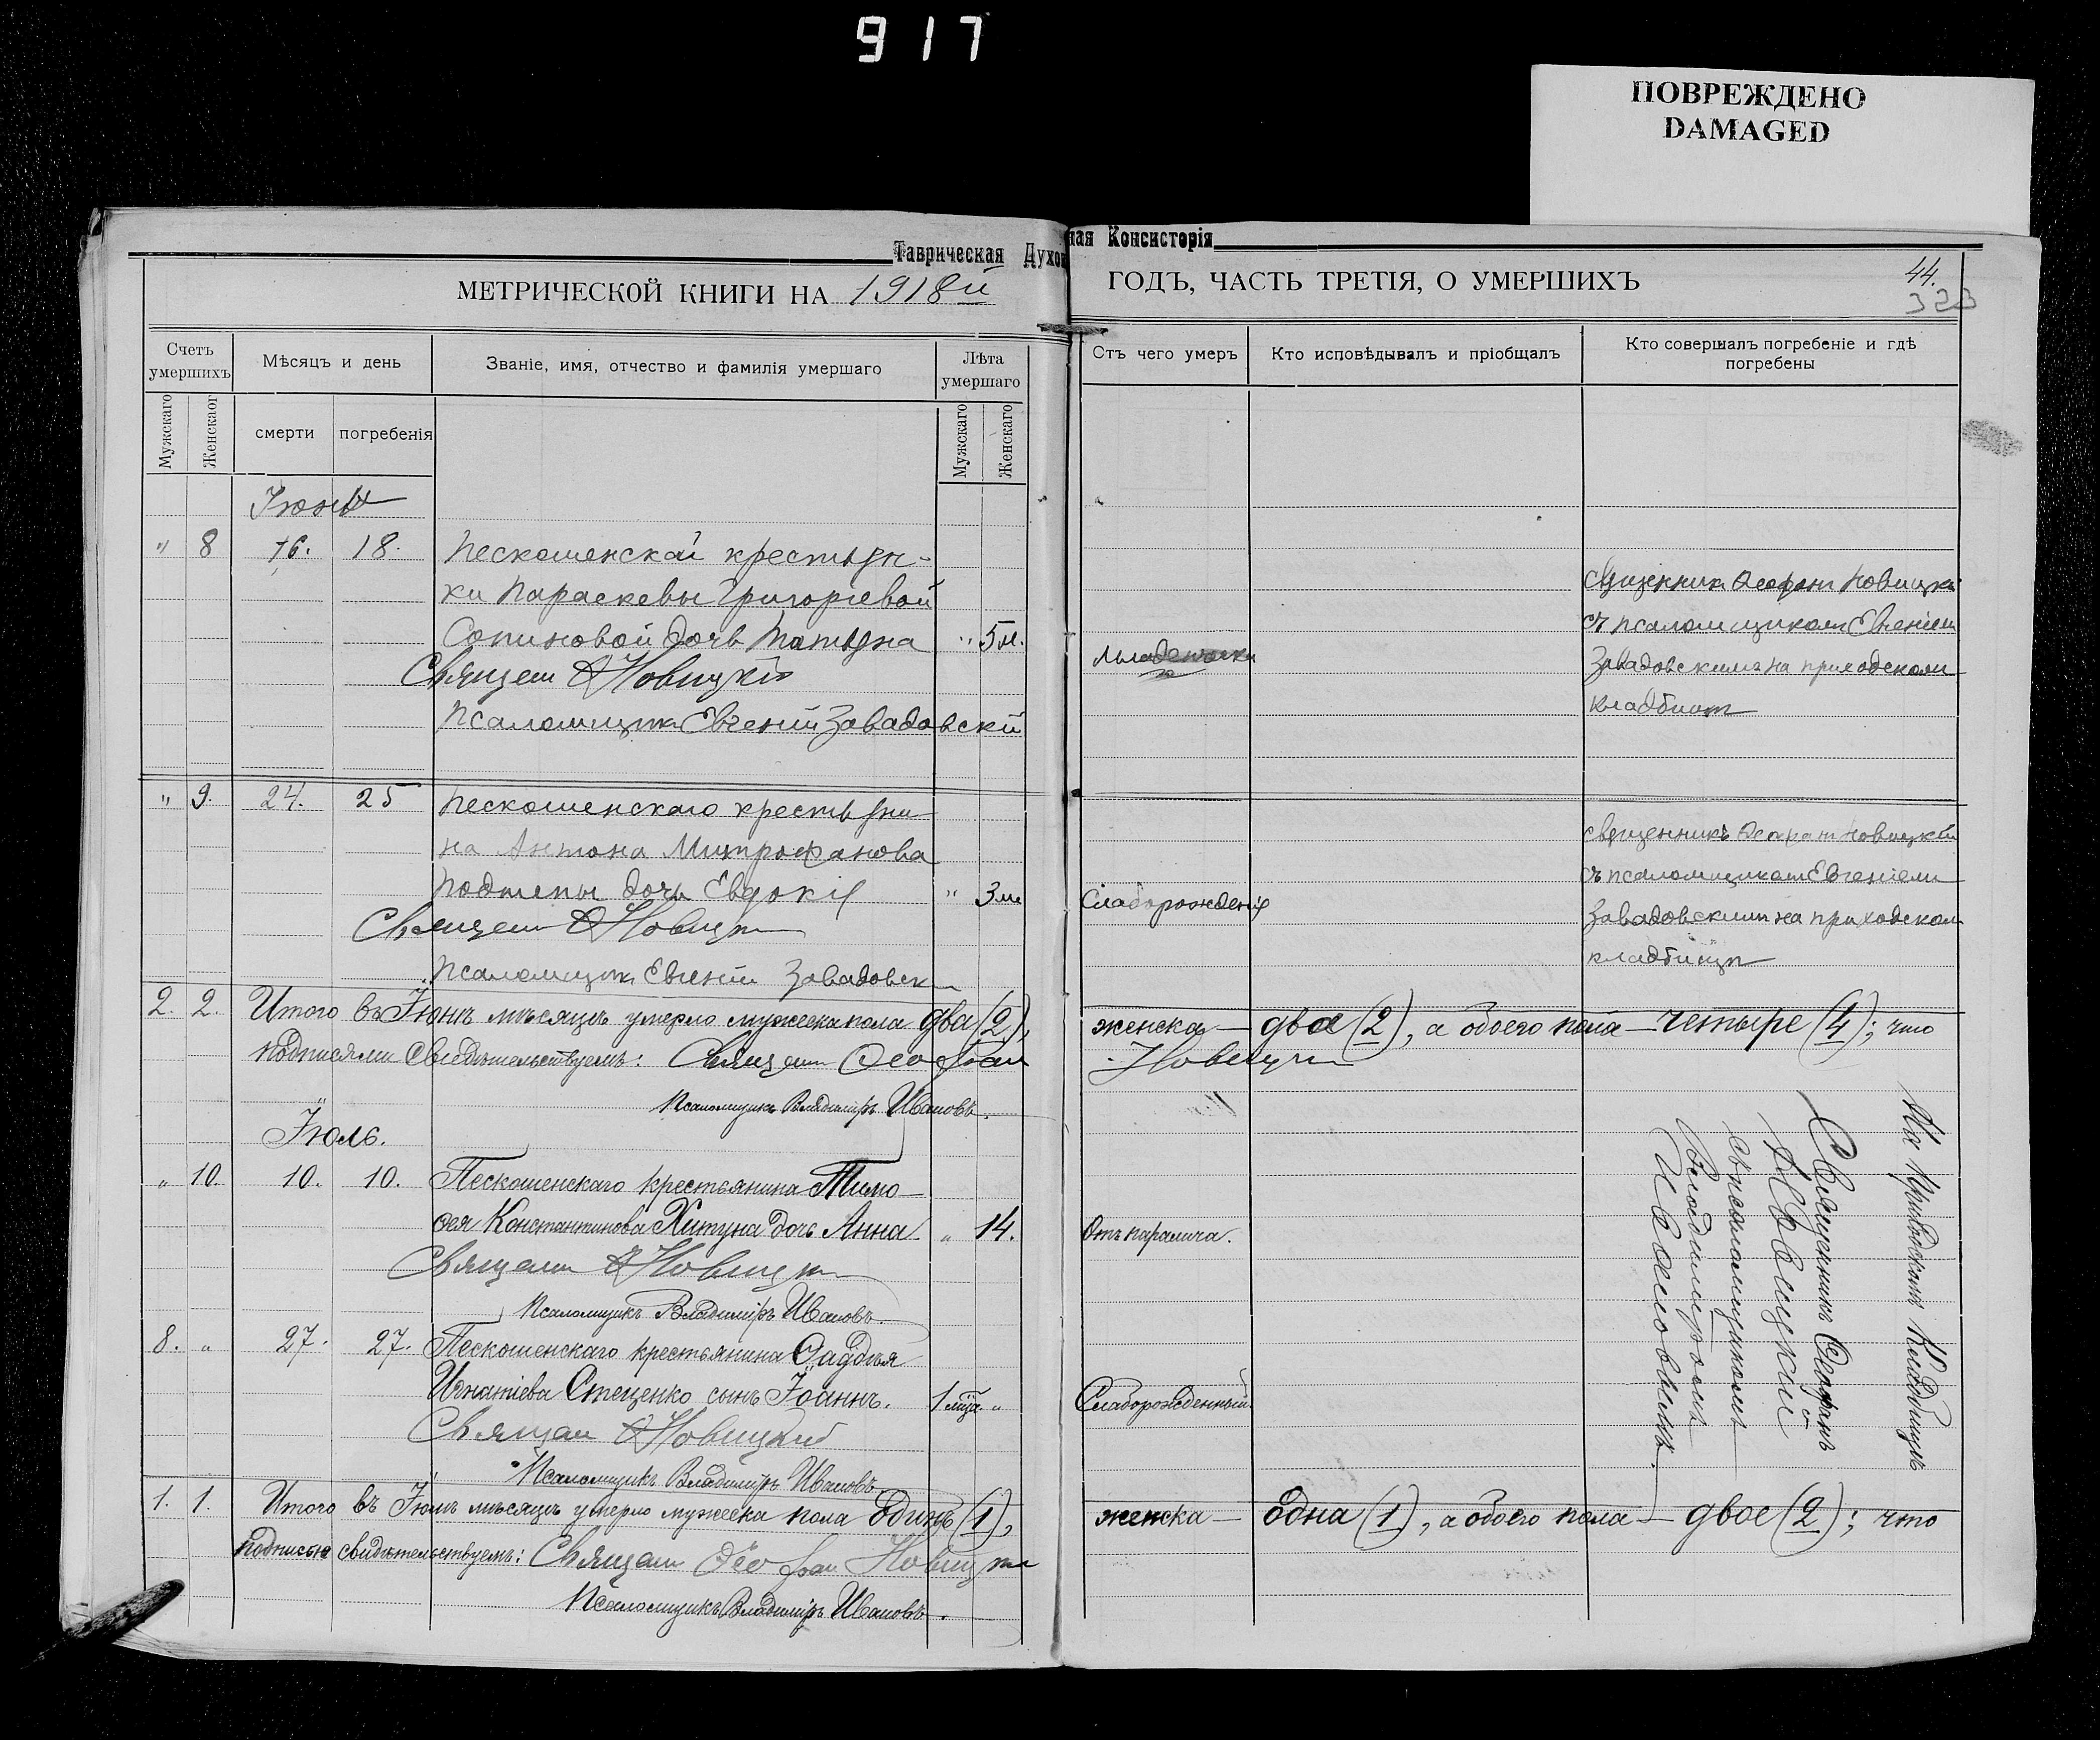 917
ПОВРЕЖДЕНО
DAMAGED
Таврическая Духов
ная Консисторія
МЕТРИЧЕСКОЙ КНИГИ НА 1918й
ГОДЪ, ЧАСТЬ ТРЕТІЯ, О УМЕРШИХЪ
44.
323
Счетъ умершихъ
Мѣсяцъ и день
Званіе, имя, отчество и фамилія умершаго
Лѣта умершаго
Мужскаго
Женскаог
смерти
погребенія
Мужскаго
Женскаго
Стъ чего умеръ
Кто исповѣдывалъ и пріобщалъ
Кто совершалъ погребеніе и гдѣ
погребены
Іюнь
" 8 16. 18. Пескошенской крестьян-
ки Параскевы Григоріевой
Сопиновой дочь Татьяна " 5 м.
Священ Ѳ Новицкій
Псаломщик Евгеній Завадовскій
Младенческ
священник Ѳеофан Новицкі
съ псаломщиком Евгеніем
Завадовским на приходском
кладбищѣ
" 9. 24. 25 Пескошенскаго крестьяни
на Антона Митрофанова
дочь Евдокія " 3 м.
Священ Ѳ Новицк
Псаломщик Евгеній Завадовск
Слаборожденія
священникъ Ѳеофан Новицкій
съ псаломщикомъ Евгеніем
Завадовским на приходском
кладбищѣ
2. 2. Итого въ Іюнѣ мѣсяцѣ умерло мужеска пола два (2), женска — два (2), а обоего пола — четыре (4); что
подписями свидѣтельствуемъ: Священ Ѳеофан Новицкі
Псаломщикъ Владиміръ Ивановъ.
Іюль.
" 10. 10. 10. Пескошенскаго крестьянина Тимо-
ѳея Константинова Хитуна дочь Анна. " 14.
Отъ паралича.
Священ Ѳ Новицк
Псаломщикъ Владиміръ Ивановъ.
8. " 27. 27. Пескошенскаго крестьянина Ѳаддѣя
Игнатіева Стеценко сынъ Іоаннъ. 1 мца. "
Слаборожденный.
Священ Ѳ Новицкій
Псаломщикъ Владиміръ Ивановъ.
Священникъ Ѳеофанъ
Новицкій
съ псаломщикомъ
Владиміромъ
Ивановымъ.
На приходскомъ кладбищѣ
1. 1. Итого въ Іюлѣ мѣсяцѣ умерло мужеска пола одинъ (1), женска — одна (1), а обоего пола — двое (2); что
подписью свидѣтельствуемъ: Священ Ѳеофан Новицкі
Псаломщикъ Владиміръ Ивановъ.